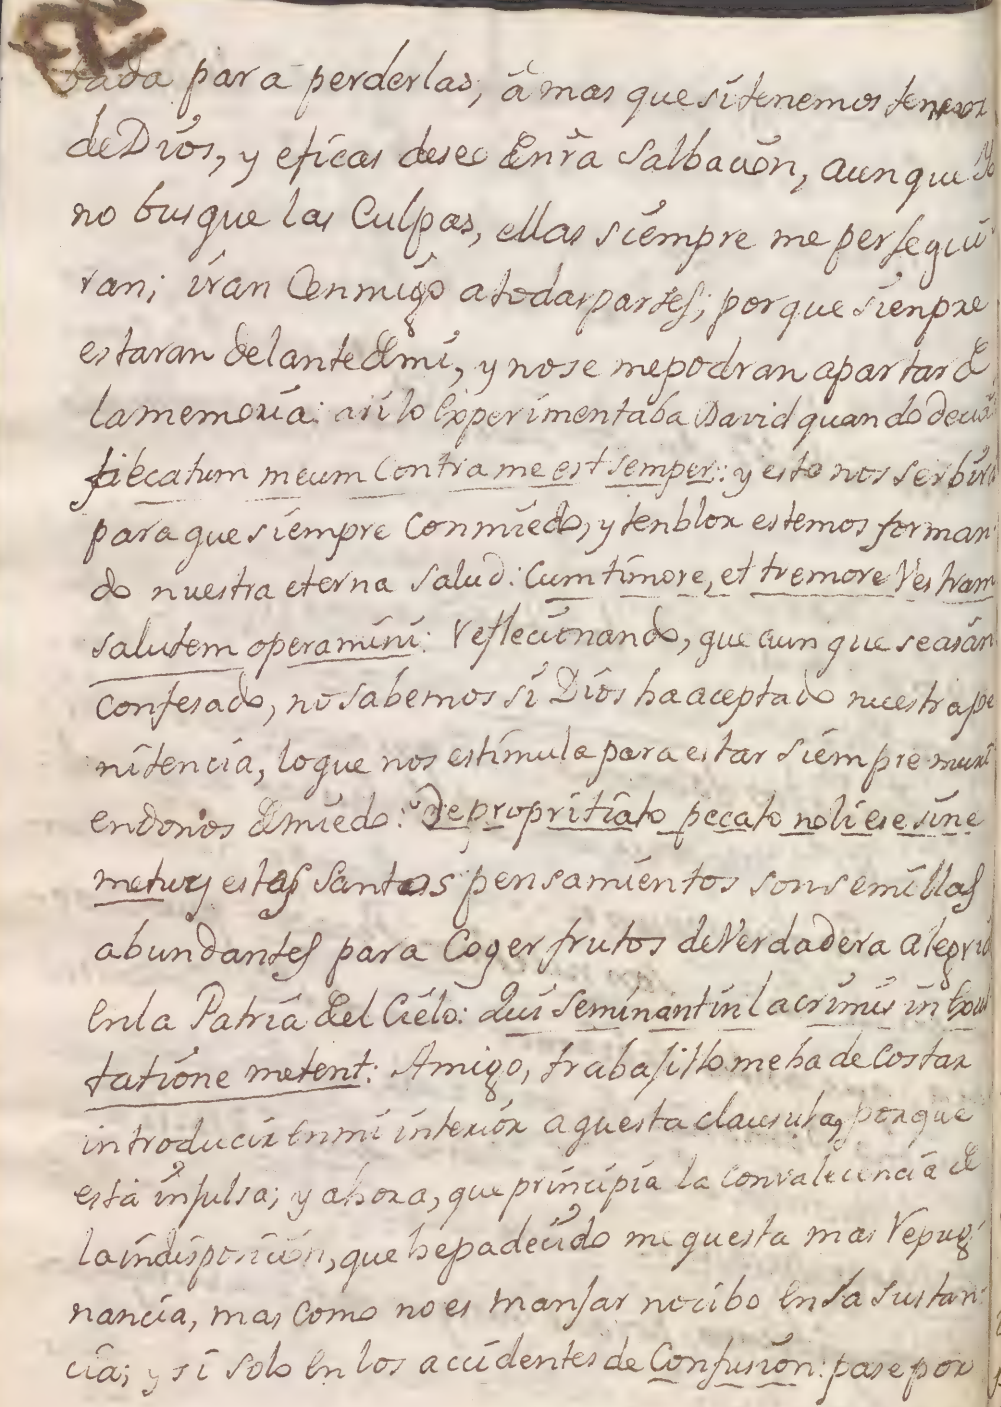 bada para perderlas; â mas que si tenemos temor
de Dios, y eficas deseo de nrâ Salbacion, aunque Yo
no busque las Culpas, ellas siempre me persegui
ran; iran Conmigo a todas partes; porque sienpre
estaran delante de mi, y no se me podran apartar de
la memoria: asi lo experimentaba David quando decia
pecatum meum Contra me est semper: y esto nos serbirá
para que siempre Con miedo, y tenblor estemos forman
do nuestra eterna salud: Cum timore, et tremore Vestram
salutem operamini: Reflecionando, que aun que seaian
confesado, no sabemos si Dios ha aceptado nuestra pe
nitencia, lo que nos estimula para estar siempre muri
endonos de miedo: De propritiato pecato noli ese sine
metu; y estos santos pensamientos son semillas
abundantes para Coger frutos de Verdadera alegria
En la Patria del Cielo: Qui seminant in lacrimis in Exul
tatione metent: Amigo, trabajillo me ha de Costar
introducir En mi interior aquesta clausula, porque
está insulsa; y ahora, que principia la convalecencia de
la indisposicion, que he padecido me questa mas Repug
nancia, mas como no es manjar nocibo En la sustan
cia; y si solo En los accidentes de Confusion: pase por